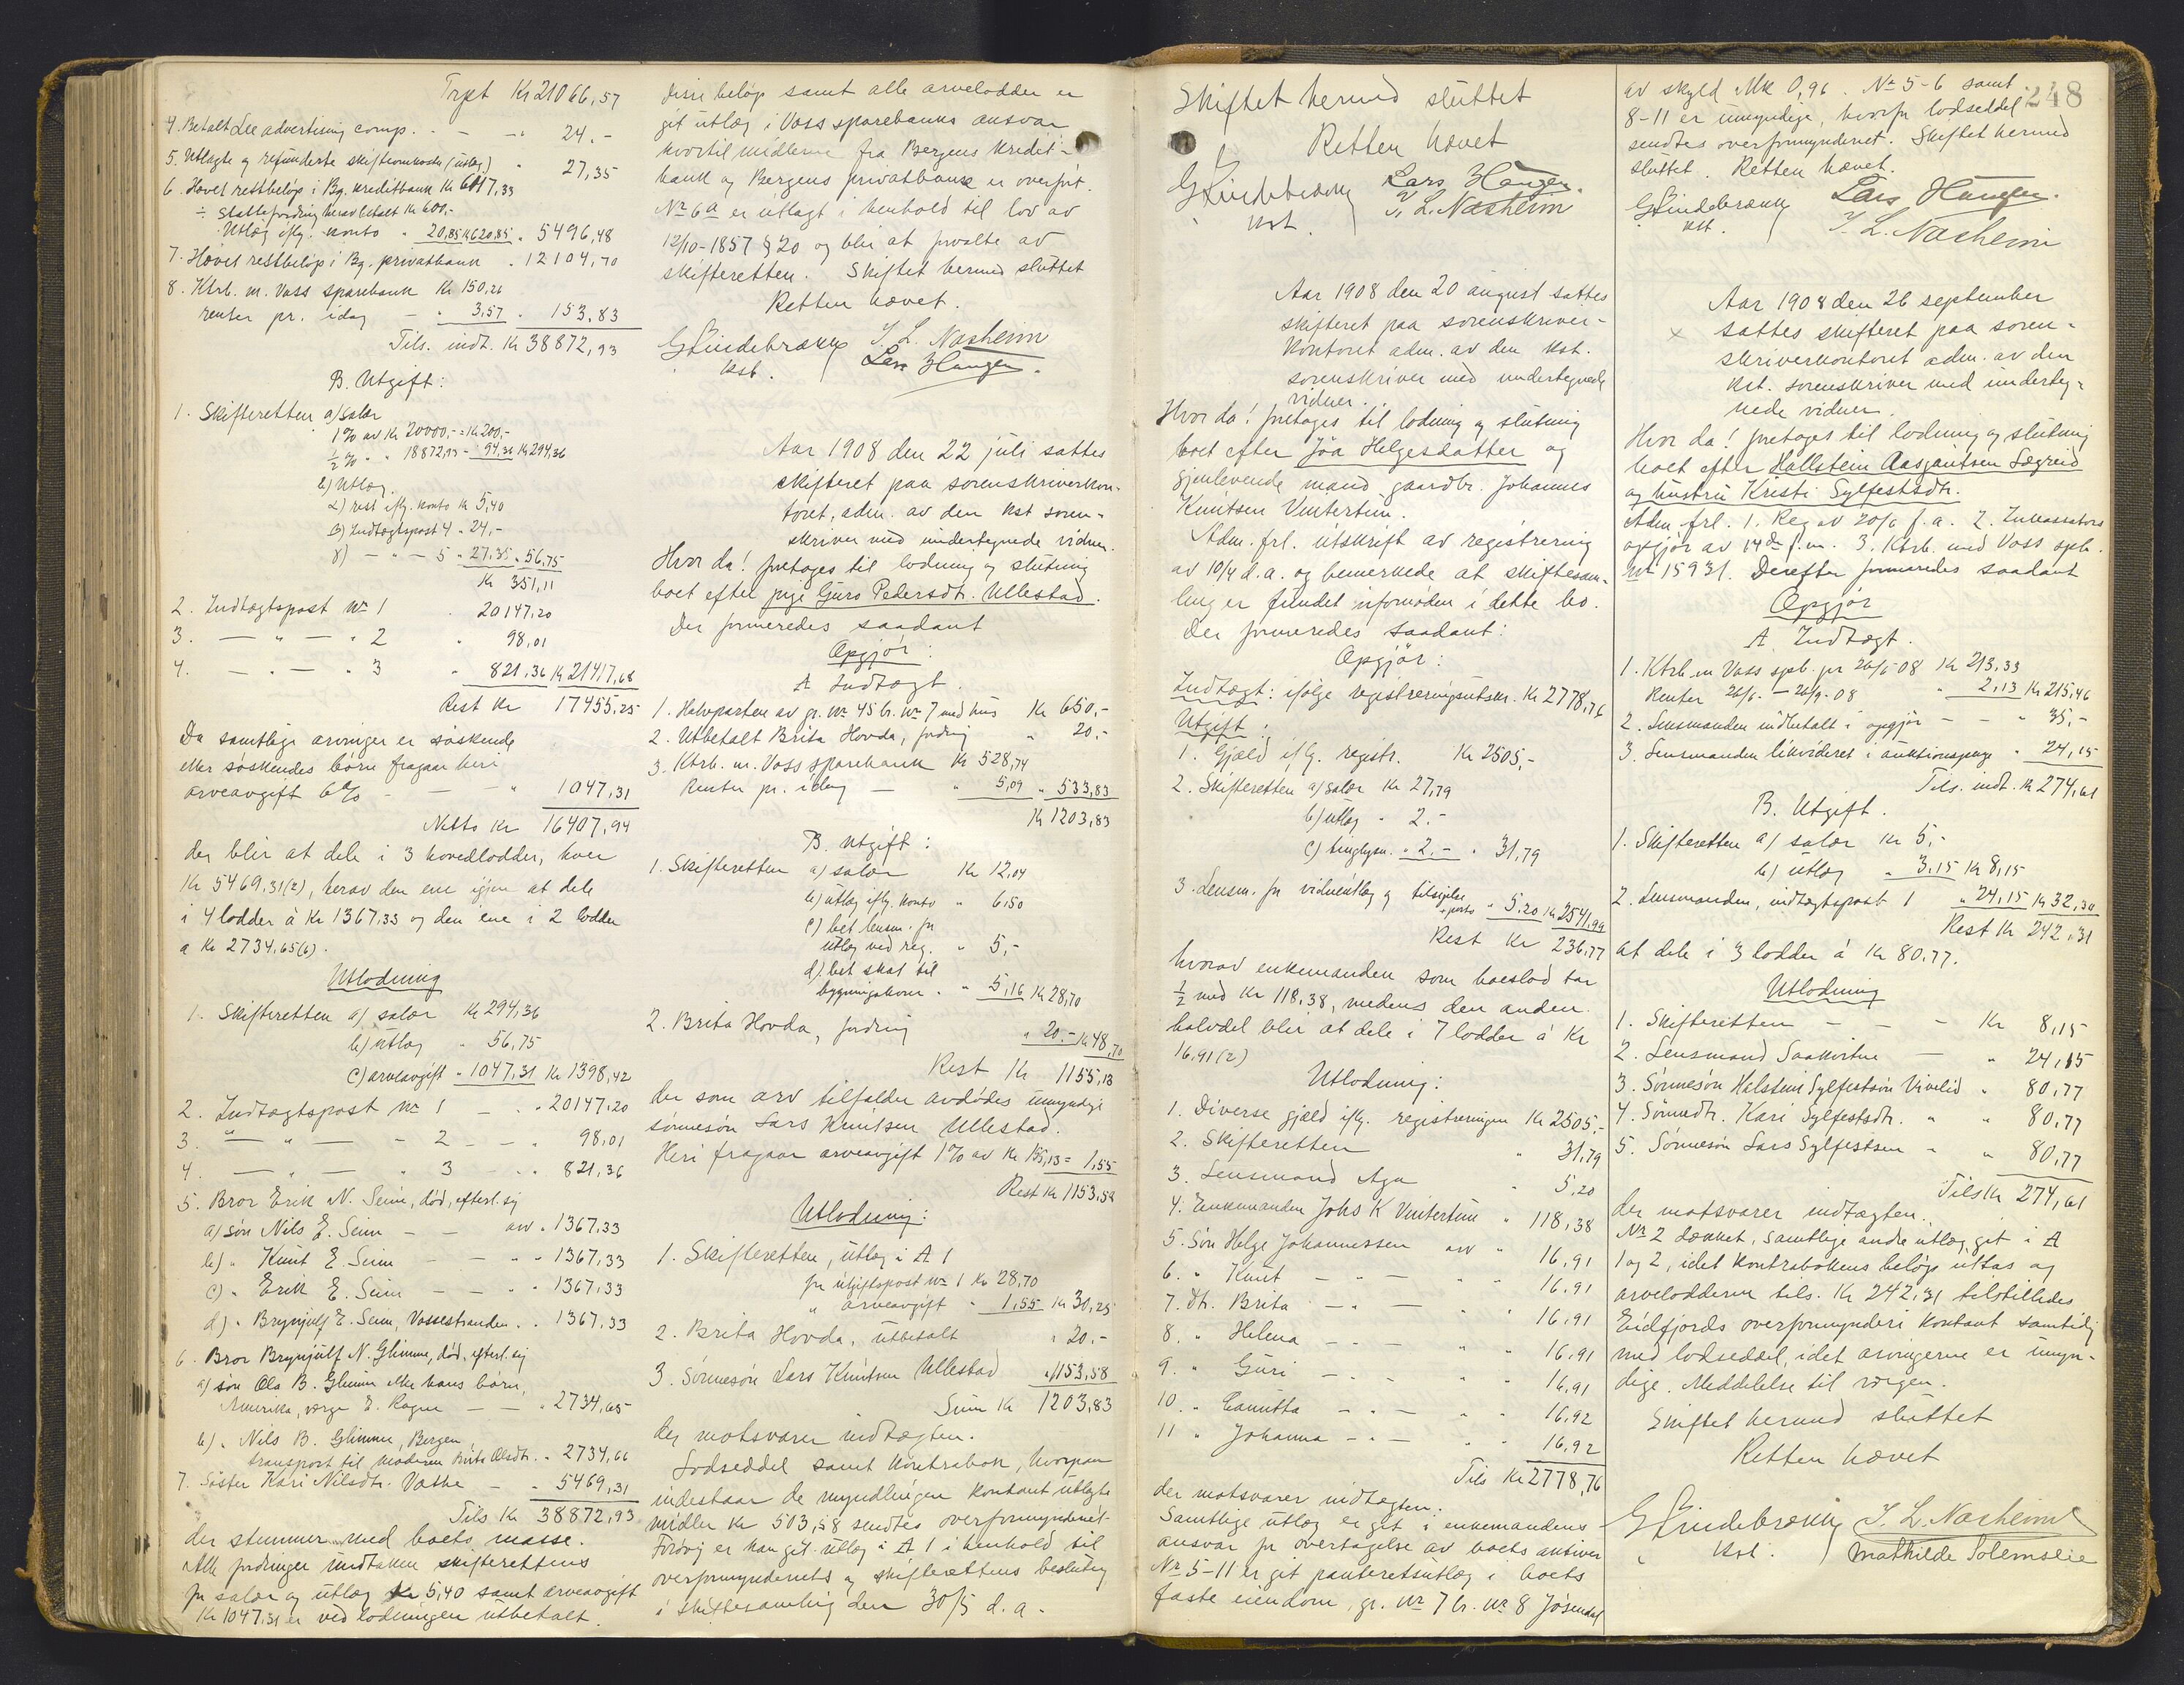 Trpt Kr 21066,57
4. Betalt Lee advertising comp. - - " 24.-
5. Utlagte og refunderte skifteomkostn. (utlæg) " 27,35
6. Hævet restbeløp i Bg. kreditbank Kr 6117,33
÷ Skattefordring herav betalt Kr 600,-
Utlæg iflg. konto " 20,85 Kr 620,85 " 5496,48
7. Hævet restbeløp i Bg. privatbank " 12104,70
8. Ktrb. m. Voss sparebank Kr 150,26
renter pr. idag - " 3,57 " 153,83
Tils. indt. Kr 38872,93
B. Utgift:
1. Skifteretten a) salær
1 % av Kr 20000,- = Kr 200,-
½ % " " 18872,93 - 94,36 Kr 294,36
b) Utlæg
α) rest iflg. konto Kr 5,40
β) Indtægtspost 4 " 24,-
γ) - " - 5 " 27,35 " 56,75
Kr 351,11
2. Indtægtspost No 1 " 20147,20
3. - " - " 2 " 98,01
4. - " - " 3 " 821,36 Kr 21417,68
Rest Kr 17455,25
Da samtlige arvinger er søskende
eller søskendes børn fragaar heri
arveavgift 6% - - - " 1047,31
Netto Kr 16407,94
der blir at dele i 3 hovedlodder, hver
Kr 5469,31(2), herav den ene igjen at dele
i 4 lodder à Kr 1367,33 og den ene i 2 lodder
a Kr 2734,65(6).
Utlodning
1. Skifteretten a) salær Kr 294,36
b) utlæg " 56,75
c) arveavgift " 1047,31 Kr 1398,42
2. Indtægtspost No 1 - - " 20147,20
3. - " - " 2 - - " 98,01
4. - " - " 3 - " 821,36
5. Bror Erik N. Seim, død, efterl. sig
a) søn Nils E. Seim - - arv " 1367,33
b) " Knut E. Seim - - " " 1367,33
c) " Erik E. Seim - - " " 1367,33
d) " Brynjulf E. Seim, Vossestranden " " 1367,33
6. Bror Brynjulf N. Glimme, død, efterl. sig
a) søn Ola B. Glimme eller hans børn,
Amerika, værge E. Rogne - - " 2734,65
b) " Nils B. Glimme, Bergen
transport til moderen Brita Olsdtr. " 2734,66
7. Søster Kari Nilsdtr. Vathe - " 5469,31
Tils. Kr 38872,93
der stemmer med boets masse.
Alle fordringer undtaken skifterettens
for salær og utlæg Kr 5,40 samt arveavgift
Kr 1047,31 er ved lodningen utbetalt.
disse beløp samt alle arvelodder er
git utlæg i Voss sparebanks ansvar
hvortil midlerne fra Bergens kredit-
bank og Bergens privatbank er overført.
No 6a er utlagt i henhold til lov av
12/10-1857 § 20 og blir at forvalte av
skifteretten. Skiftet hermed sluttet
Retten hævet.
G Lindebrække I. L. Næsheim
kst. Lars Haugen.
Aar 1908 den 22 juli sattes
skifteret paa sorenskriverkon-
toret, adm. av den kst soren-
skriver med undertegnede vidner.
Hvor da! foretages til lodning og slutning
boet efter pige Guro Pedersdtr. Ullestad.
Der formeredes saadant
Opgjør:
A Indtægt.
1. Halvparten av gr. No 45 br. No 7 med hus Kr 650,-
2. Utbetalt Brita Hovda, fordring " 20,-
3. Ktrb. m. Voss sparebank Kr 528,74
Renter pr. idag - " 5,09 " 533,83
Kr 1203,83
B. Utgift:
1. Skifteretten a) salær Kr 12,04
b) utlæg iflg. konto " 6,50
c) bet lensm. for
utlæg ved reg. " 5,-
d) bet skat til
bygningskom. " 5,16 Kr 28,70
2. Brita Hovda, fordring " 20.- Kr 48,70
Rest Kr 1155,13
der som arv tilfalder avdødes umyndige
sønnesøn Lars Knutsen Ullestad.
Heri fragaar arveavgift 1% av Kr 155,13 = 1,55
Rest Kr 1153,58
Utlodning:
1. Skifteretten, utlæg i A 1
for utgiftspost No 1 Kr 28,70
" arveavgift " 1,55 Kr 30,25
2. Brita Hovda, utbetalt " 20.-
3. Sønnesøn Lars Knutsen Ullestad " 1153,58
Sum Kr 1203,83
der motsvarer indtægten.
Lodseddel samt kontrabok, hvorpaa
indestaar de myndlingen kontant utlagte
midler Kr 503,58 sendtes overformynderiet.
Forøvrig er han git utlæg i A 1 i henhold til
overformynderiets og skifterettens beslutning
i skiftesamling den 30/5 d.a.
Skiftet hermed sluttet
Retten hævet
G Lindebrække Lars Haugen.
kst. I. L. Næsheim
Aar 1908 den 20 august sattes
skifteret paa sorenskriver-
kontoret adm. av den kst.
sorenskriver med undertegnede
vidner.
Hvor da! foretages til lodning og slutning
boet efter Jóa Helgesdatter og
gjenlevende mand gaardbr. Johannes
Knutsen Vintertun.
Adm. frl. utskrift av registrering
av 10/4 d.a. og bemerkede at skiftesam-
ling er fundet ufornøden i dette bo.
Der formeredes saadant:
Opgjør:
Indtægt: ifølge registreringsutskr. Kr 2778,76
Utgift:
1. Gjæld iflg. registr. Kr 2505,-
2. Skifteretten a) salær Kr 27,79
b) utlæg " 2.-
c) tinglysn. " 2.- " 31,79
3. Lensm. for vidneutlæg og tilsigelse
+ porto " 5,20 Kr 2541,99
Rest Kr 236,77
hvorav enkemanden som boeslod tar
½ med Kr 118,38, medens den anden
halvdel blir at dele i 7 lodder à Kr
16,91(2)
Utlodning:
1. Diverse gjæld iflg. registreringen Kr 2505,-
2. Skifteretten " 31,79
3. Lensmand Aga " 5,20
4. Enkemanden Johs K Vintertun " 118,38
5. Søn Helge Johannessen arv " 16,91
6. " Knut - " - " " 16,91
7. Dtr. Brita - " - " " 16,91
8. " Helena - - " " 16,91
9. " Guri - " - " " 16,91
10. " Canutta - " - " " 16,92
11 " Johanna - " - " " 16,92
Tils Kr 2778,76
der motsvarer indtægten.
Samtlige utlæg er git i enkemandens
ansvar for overtagelse av boets aktiver
No 5-11 er git panteretsutlæg i boets
faste eiendom, gr. No 7 br. No 8 Jøsendal
248
av skyld Mk 0,96. No 5-6 samt
8-11 er umyndige, hvorfor lodseddel
sendtes overformynderiet. Skiftet hermed
sluttet. Retten hævet.
G Lindebrække Lars Haugen.
kst. I. L. Næsheim
Aar 1908 den 26 september
x sattes skifteret paa soren-
skriverkontoret adm. av den
kst. sorenskriver med underteg-
nede vidner.
Hvor da! foretages til lodning og slutning
boet efter Hallstein Aasgautsen Sægreid
og hustru Kristi Sylfestsdtr.
Adm. frl. 1. Reg av 20/6 f.a. 2. Inkassators
opgjør av 14de f.m. 3. Ktrb. med Voss spb.
No 15931. Derefter formeredes saadant
Opgjør
A Indtægt.
1. Ktrb m Voss spb. pr 26/6 08 Kr 213,33
Renter 26/6 - 26/9-08 " 2,13 Kr 215,46
2. Lensmanden indbetalt i opgjør - - " 35,-
3. Lensmanden likvideret i auktionspenge " 24,15
Tils. indt. Kr 274,61
B. Utgift.
1. Skifteretten a) salær Kr 5,-
b) utlæg " 3,15 Kr 8,15
2. Lensmanden, indtægtspost 1 " 24,15 Kr 32,30
Rest Kr 242,31
at dele i 3 lodder à Kr 80,77.
Utlodning
1. Skifteretten - - - Kr 8,15
2. Lensmand Saakvitne - " 24,15
3. Sønnesøn Helstein Sylfestson Vivelid " 80,77
4. Sønnedtr. Kari Sylfestsdtr. " " 80,77
5. Sønnesøn Lars Sylfestsen " " 80,77
Tils Kr 274,61
der motsvarer indtægten.
No 2 dækket, samtlige andre utlæg git i A
1 og 2, idet kontrabokens beløp uttas og
arvelodderne tils. Kr 242,31 tilstilledes
Eidfjords overformynderi kontant samtidig
med lodseddel, idet arvingerne er umyn-
dige. Meddelelse til vergen.
Skiftet hermed sluttet
Retten hævet
G Lindebrække I. L. Næsheim
kst. Mathilde Solemslie